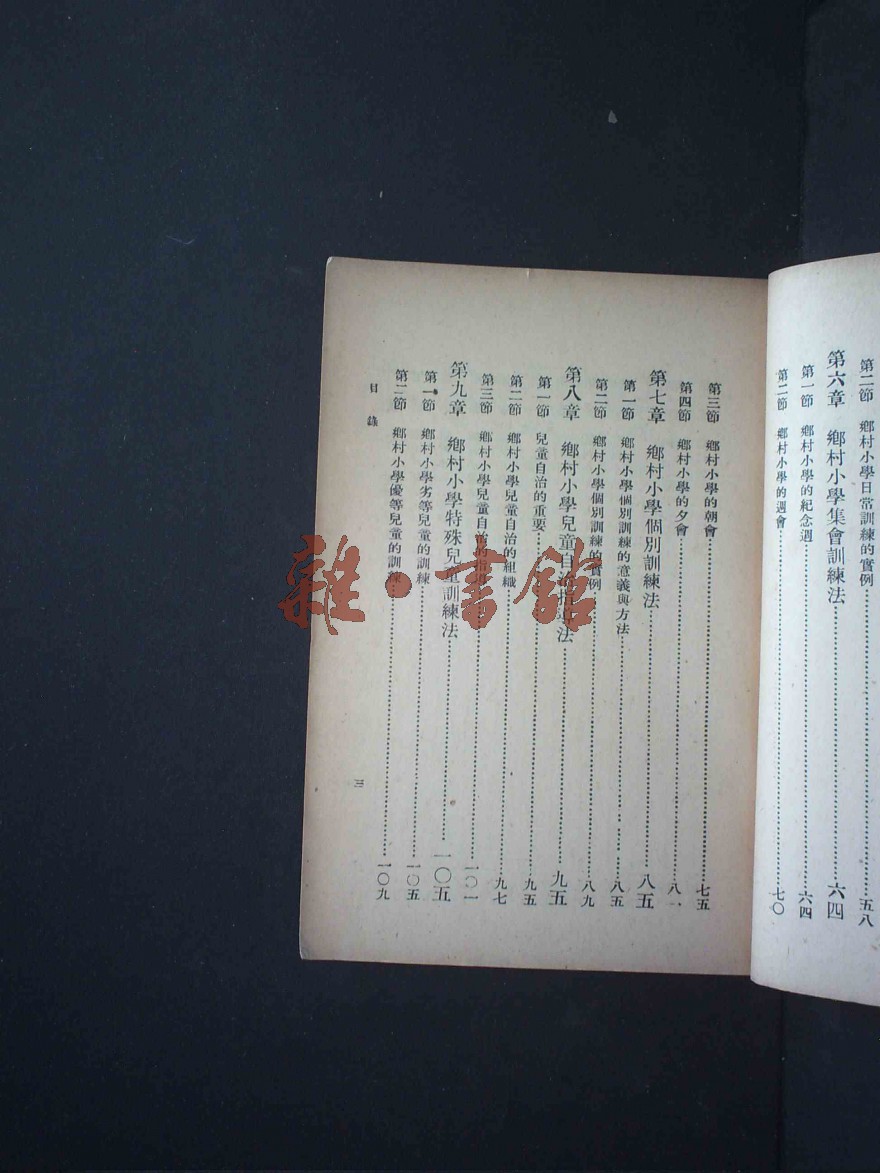 第二節　鄉村小學日常訓練的實例……五八
第六章　鄉村小學集會訓練法……六四
第一節　鄉村小學的紀念週……六四
第二節　鄉村小學的週會……七〇
第三節　鄉村小學的朝會……七五
第四節　鄉村小學的夕會……八一
第七章　鄉村小學個別訓練法……八五
第一節　鄉村小學個別訓練的意義與方法……八五
第二節　鄉村小學個別訓練的實例……八九
第八章　鄉村小學兒童自治指導法……九五
第一節　兒童自治的重要……九五
第二節　鄉村小學兒童自治的組織……九七
第三節　鄉村小學兒童自治的指導……一〇一
第九章　鄉村小學特殊兒童訓練法……一〇五
第一節　鄉村小學劣等兒童的訓練……一〇五
第二節　鄉村小學優等兒童的訓練……一〇九
目錄
三
雜·書館